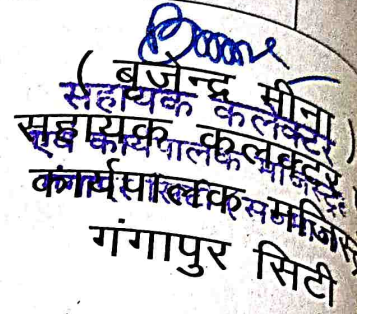 ( बृजेन्द्र मीना )
सहायक कलेक्टर
सहायक कलक्टर
एवं कार्यपालक मजिस्ट्रेट
कार्यपालक मजिस्ट्
गंगापुर सिटी